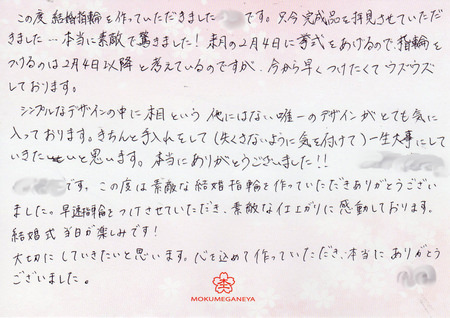 この度 結婚指輪を作っていただきました です。只今完成品を拝見させていただ
きました…本当に素敵で驚きました！来月の2月4日に挙式をあげるので、指輪を
つけるのは2月4日以降と考えているのですが、今から早くつけたくてウズウズ
しております。
シンプルなデザインの中に木目という他にはない唯一のデザインがとても気に
入っております。きちんと手入れをして(失くさないように気を付けて)一生大事にして
いきたいと思います。本当にありがとうございました!!
です。この度は素敵な結婚指輪を作っていただきありがとうござい
ました。早速指輪をつけさせていただき、素敵な仕上がりに感動しております。
結婚式当日が楽しみです！
大切にしていきたいと思います。心を込めて作っていただき、本当にありがとう
ございました。
MOKUMEGANEYA